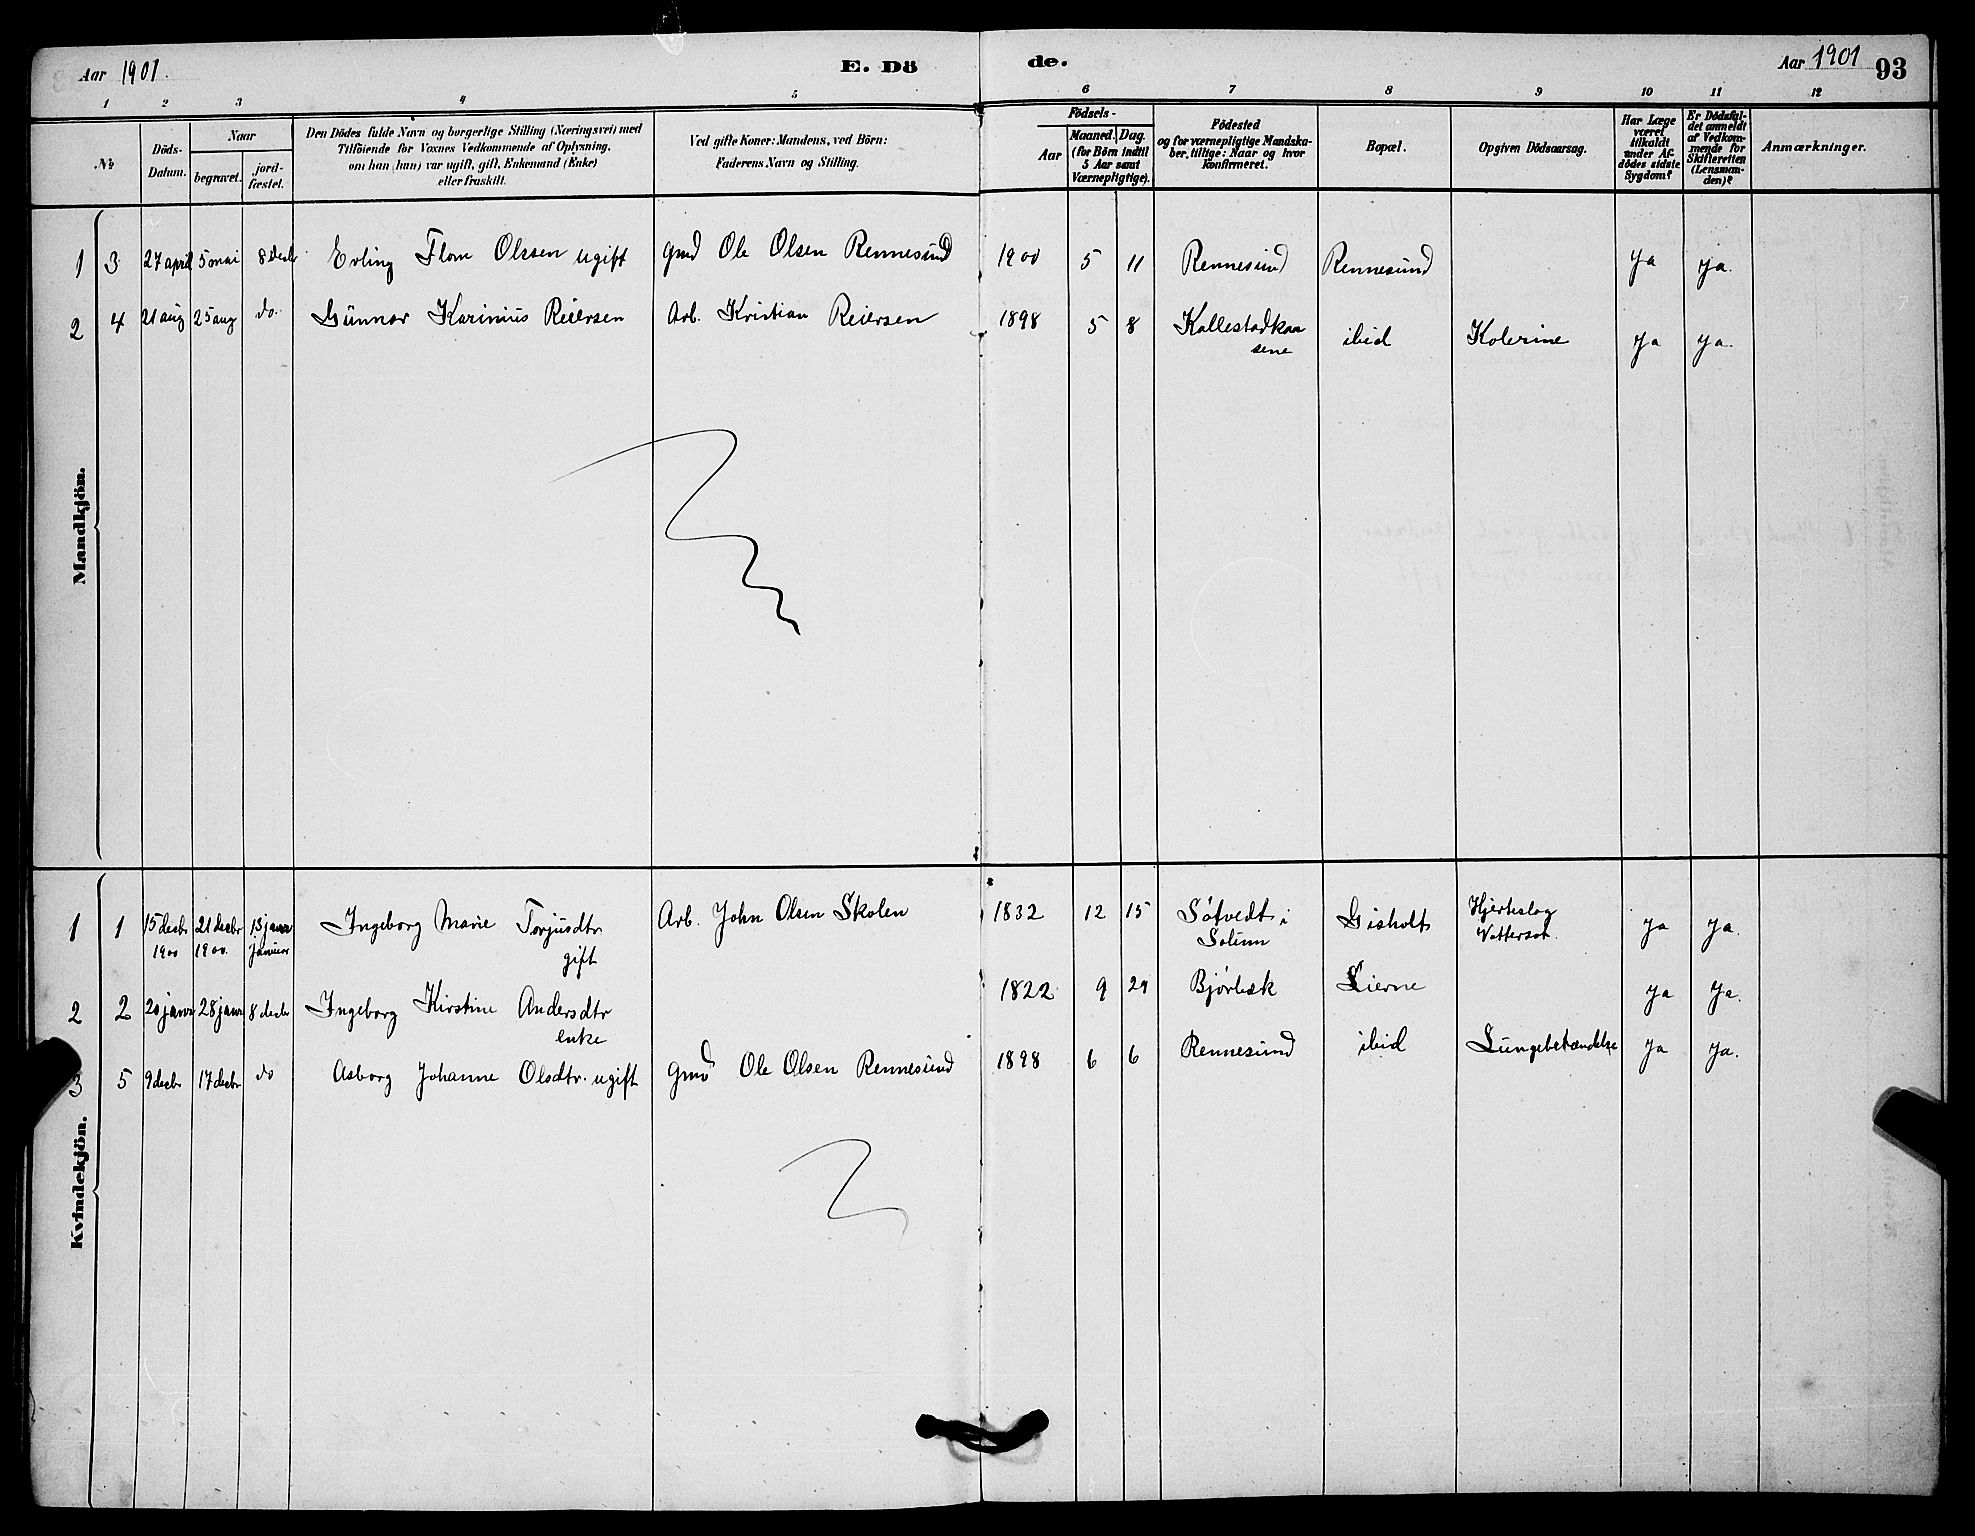 Aar 1901. E. Dö de. Aar 1901 93
1 2 3 4 5 6 7 8 9 10 11 12
№
Döds-
Datum.
Naar
begravet.
jord-
fæstet.
Den Dödes fulde Navn og borgerlige Stilling (Næringsvei) med
Tilföiende for Voxnes Vedkommende af Oplysning,
om han (hun) var ugift, gift, Enkemand (Enke)
eller fraskilt.
Ved gifte Koner: Mandens, ved Börn:
Faderens Navn og Stilling.
Födsels-
Aar
Maaned. Dag.
(for Börn indtil
5 Aar samt
Værnepligtige).
Födested
og for værnepligtige Mandska-
ber, tillige: Naar og hvor
Konfirmeret.
Bopæl.
Opgiven Dödsaarsag.
Har Læge
været
tilkaldt
under Af-
dödes sidste
Sygdom?
Er Dödsfal-
det anmeldt
af Vedkom-
mende for
Skifteretten
(Lensman-
den)?
Anmærkninger.
Mandkjön.
1 3 27 april 5 mai 8 decbr Erling Flom Olssen ugift gmd Ole Olsen Rennesund 1900 5 11 Rennesund Rennesund ja ja.
2 4 21 aug 25 aug do. Gunnar Karinius Reiersen Arb. Kristian Reiersen 1898 5 8 Kallestadkaa
sene ibid Kolerine ja ja.
Kvindekjön.
1 1 15 decbr 21 decbr 13 janr Ingeborg Marie Torjusdtr. Arb. John Olsen Skolen 1832 12 15 Søtvedt i Gisholt Hjerteslag ja ja.
1900 1900. Januar gift Solum Vattersot.
2 2 20 janr 28 janr 8 decbr Ingeborg Kirstine Andersdtr 1822 9 29 Bjørbæk Lierne ja ja.
enke
3 5 9 decbr 17 decbr do Asborg Johanne Olsdtr. ugift gmd Ole Olsen Rennesund 1898 6 6 Rennesund ibid Lungebetændelse ja ja.